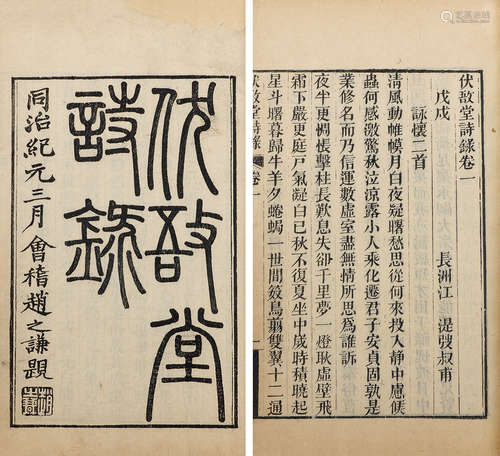 伏敔堂
詩錄
同治紀元三月會稽趙之謙題
伏敔堂詩錄卷一
長洲江湜弢叔甫
戊戌
詠懷二首
清風動帷幙月白夜疑曙愁思從何來投入靜中慮候
蟲何感激驚秋泣涼露小人乘化遷君子安貞固孰是
業修名而乃信運數虛室盡無情所思為誰訴
夜半更惆悵擊柱長歎息失卻千里夢一燈耿虛壁飛
霜下嚴更庭戶氣凝白已秋不復夏坐中時積曉起
星斗曙暮歸牛羊夕蜷蝎一世間效鳥翦雙翼十二通
伏敔堂詩錄
卷一